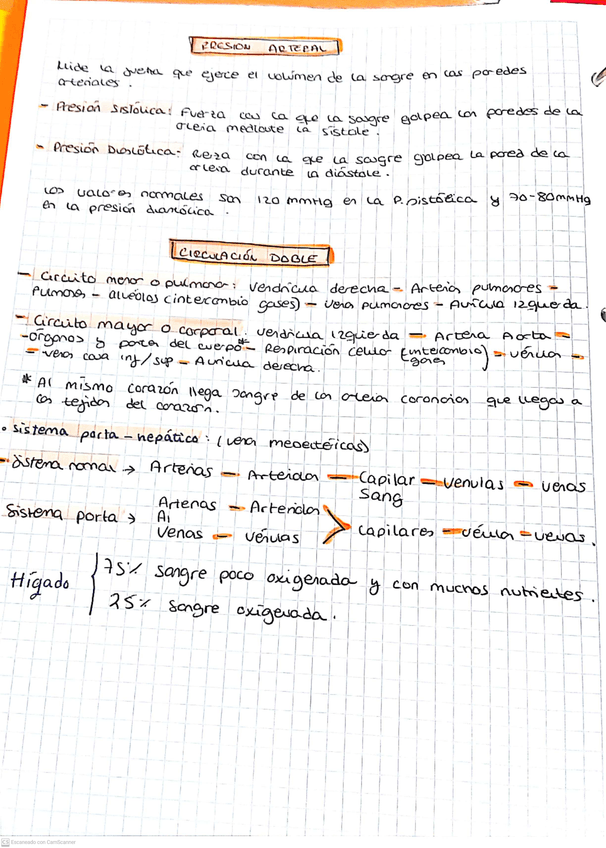 PRESION ARTERIAL
Mide la fuerza que ejerce el volumen de la sangre en las paredes
arteriales.
- Presión Sistólica: Fuerza con la que la sangre golpea las paredes de la
arteria mediante la sístole.
- Presión Diastólica: fuerza con la que la sangre golpea la pared de la
arteria durante la diástole.
Los valores normales son 120 mmHg en la P. sistólica y 70-80mmHg
en la presión diastólica.
CIRCULACIÓN DOBLE
- Circuito menor o pulmonar: Ventrícula derecha - Arterias pulmonares -
Pulmones - alvéolos (intercambio gases) - vena pulmonares - Aurícula izquierda.
- Circuito mayor o corporal: ventrícula izquierda - Artéria Aorta -
-órganos y partes del cuerpo* - Respiración celular (intercambio gases) - vénulas -
- vena cava inf/sup - Aurícula derecha.
* Al mismo corazón llega sangre de las arterias coronarias que llegas a
los tejidos del corazón.
• Sistema porta-hepático: (vena mesentéricas)
- Sistema normal → Arterias - Arteriolas - Capilar - venulas - venas
Sang
Sistema porta → Arterias - Arteriolas
Al
Venas - vénulas
> capilares - vénula - venas.
Hígado { 75% sangre poco oxigenada y con muchos nutrientes.
25% sangre oxigenada.
CS Escaneado con CamScanner